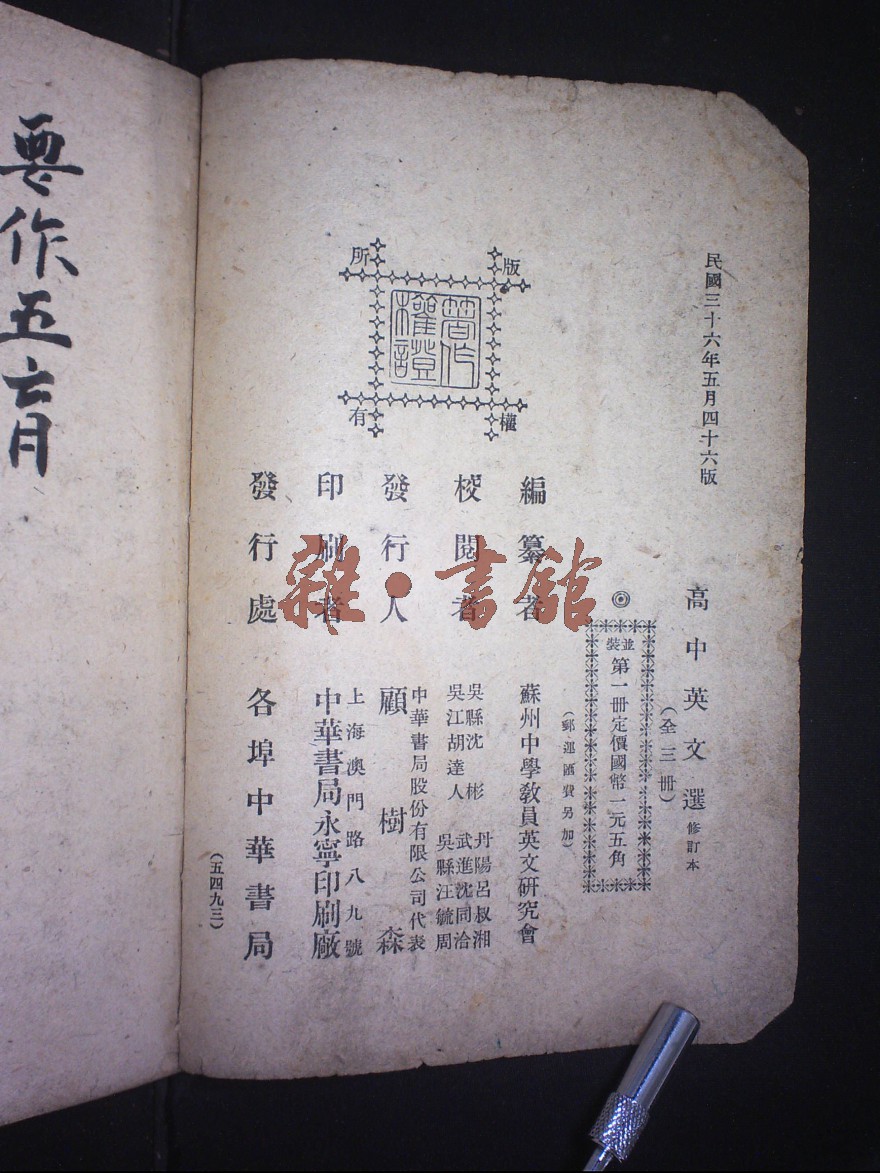 民國三十六年五月四十六版
高中英文選 修訂本
(全三冊)
◎
並裝
第一冊定價國幣一元五角
(郵運匯費另加)
版權所有
著作權證
編纂者 蘇州中學教員英文研究會
校閱者
丹陽呂叔湘
吳縣沈彬 武進沈同洽
吳江胡達人 吳縣汪毓周
發行人
中華書局股份有限公司代表
顧樹森
印刷者
上海澳門路八九號
中華書局永寧印刷廠
發行處 各埠中華書局
(五四九三)
雜·書館
要作五六月